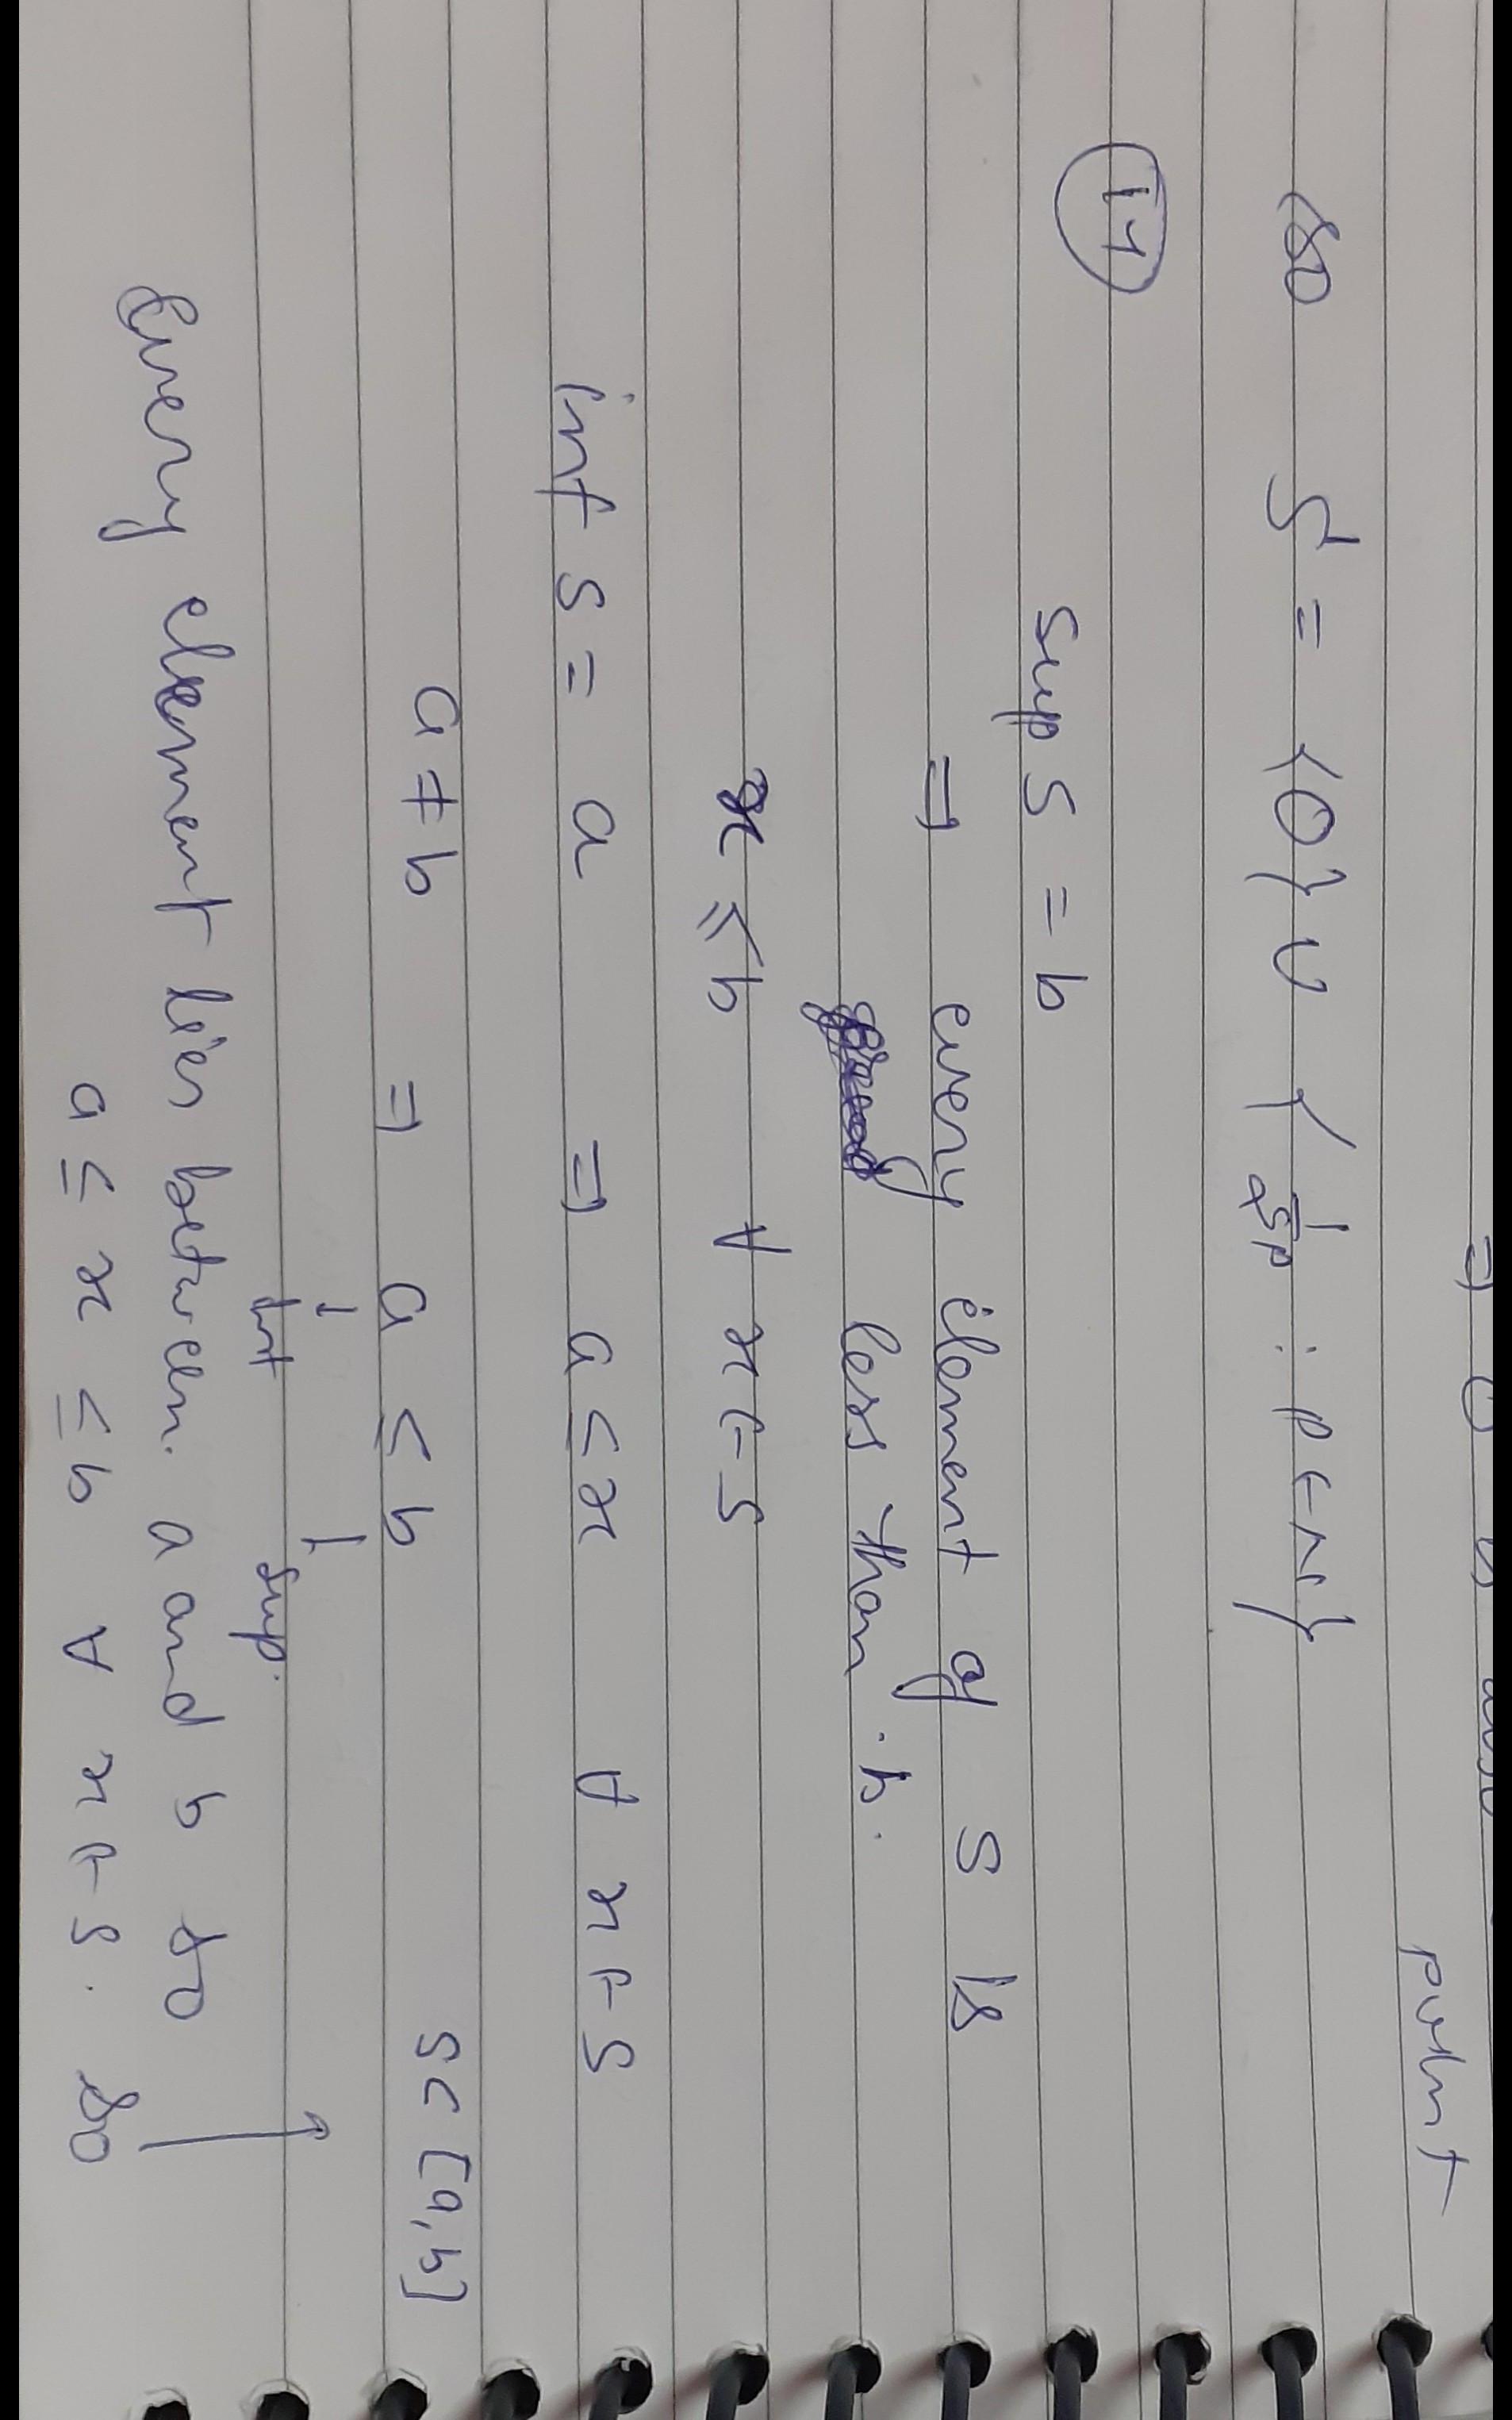 point
so S' = {0} ∪ { 1/5p : p ∈ N }
17
Sup S = b
⇒ every element of S is
less than b.
x ≤ b ∀ x ∈ S
inf S = a ⇒ a ≤ x ∀ x ∈ S
a ≠ b ⇒ a ≤ b S ⊂ [a,b]
inf Sup.
Every element lies between a and b so
a ≤ x ≤ b ∀ x ∈ S. So